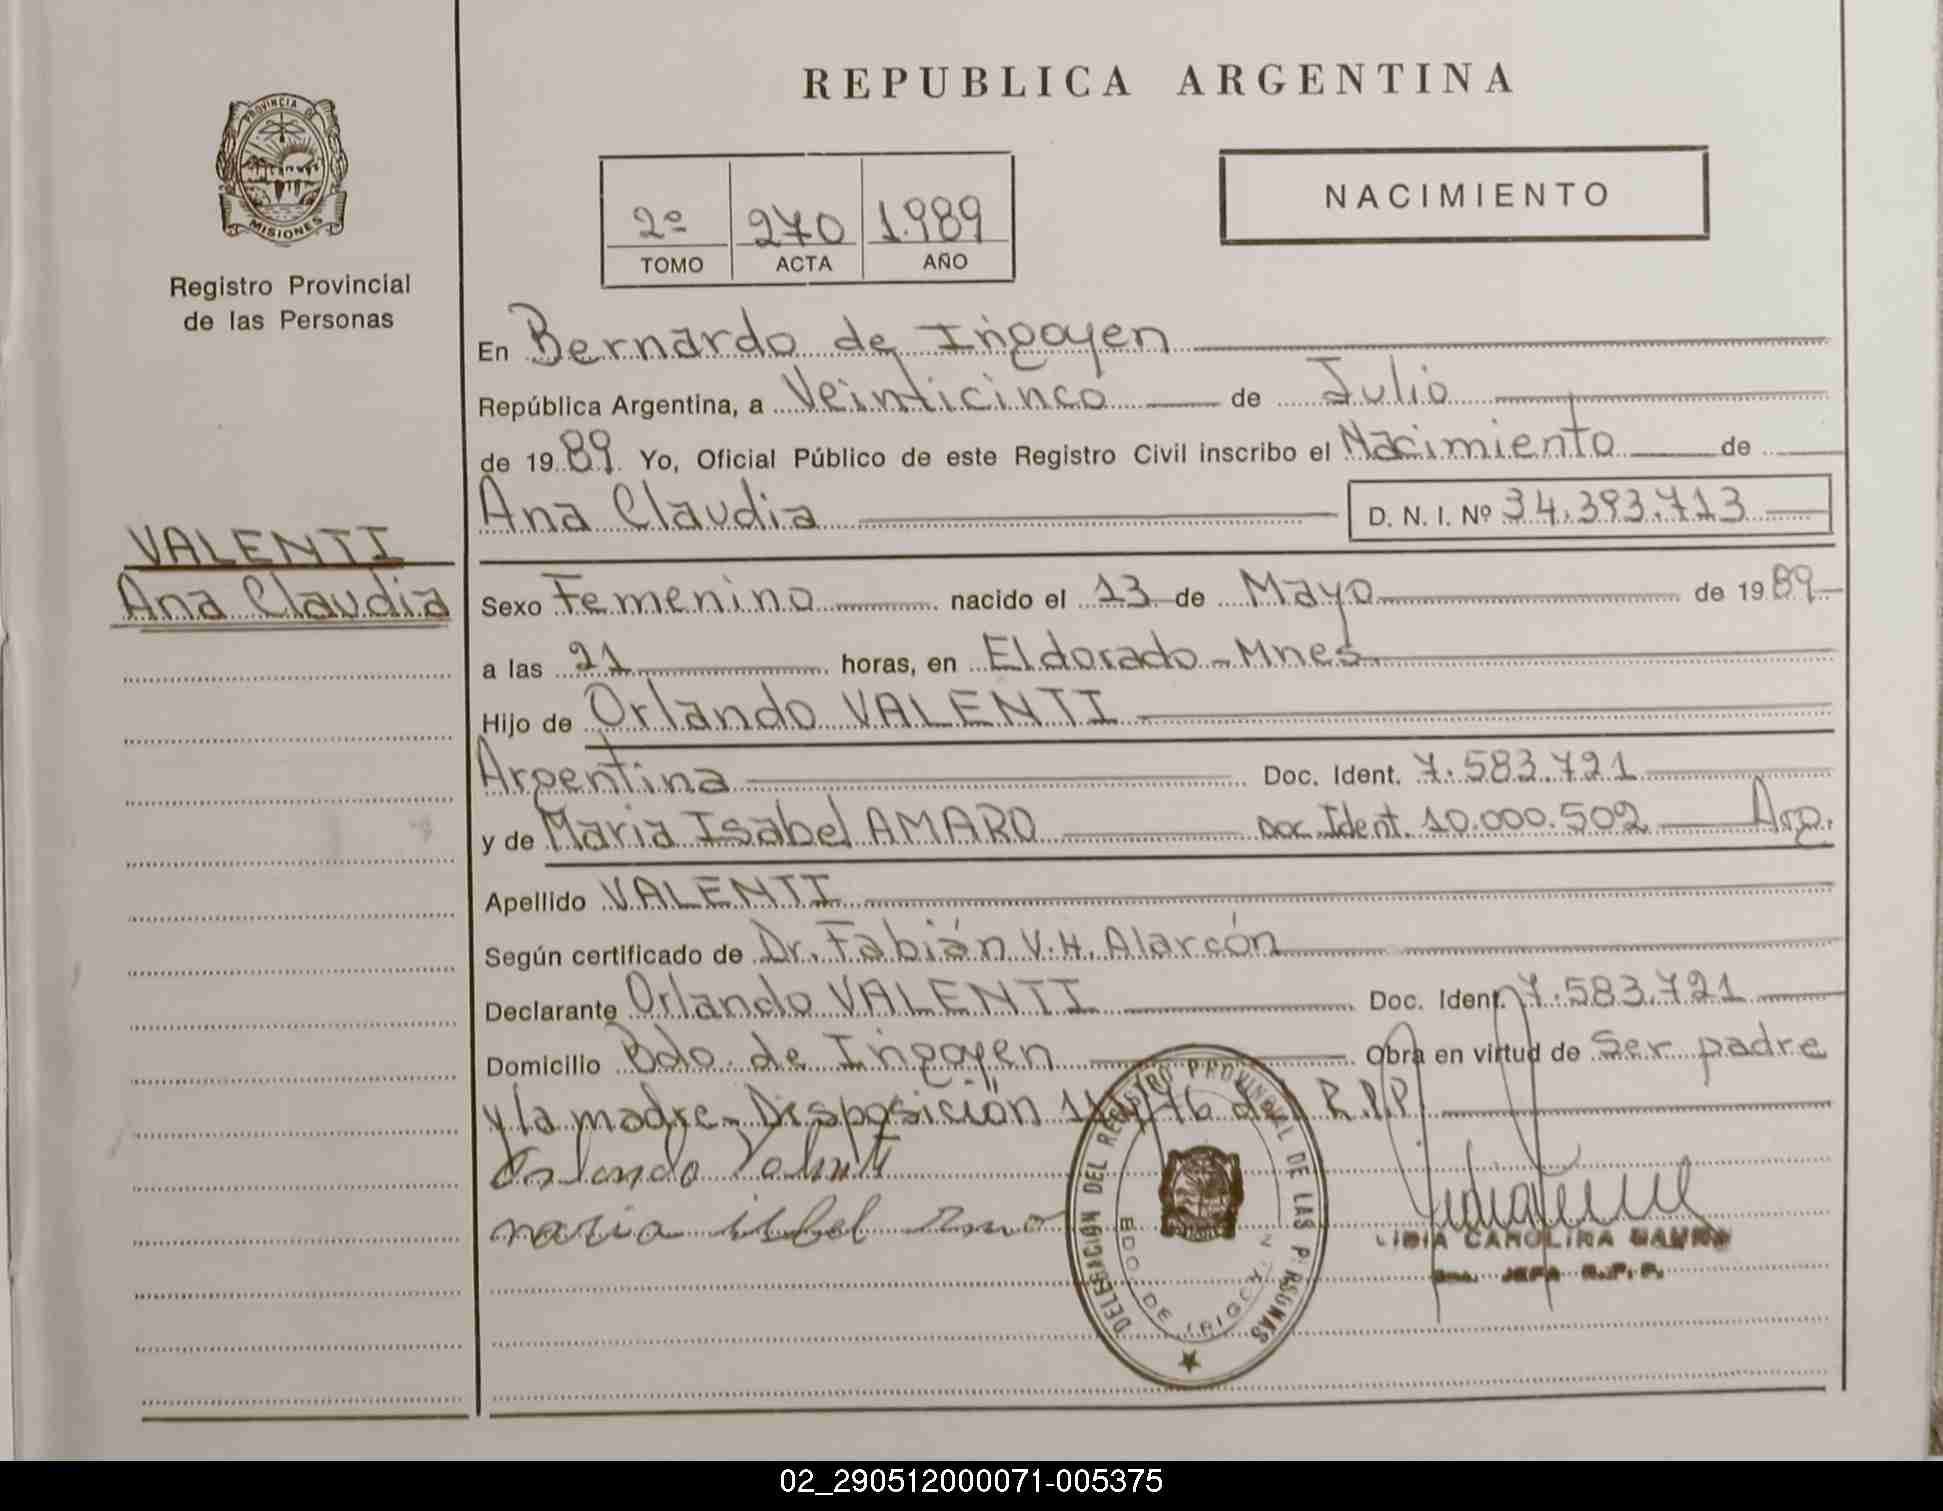 REPUBLICA ARGENTINA
PROVINCIA DE
MISIONES
Registro Provincial
de las Personas
2º 270 1.989
TOMO ACTA AÑO
NACIMIENTO
En Bernardo de Irigoyen
República Argentina, a Veinticinco de Julio
de 1989 Yo, Oficial Público de este Registro Civil inscribo el Nacimiento de
Ana Claudia D. N. I. Nº 34.393.713
VALENTI
Ana Claudia
Sexo Femenino nacido el 13 de Mayo de 1989
a las 21 horas, en Eldorado - Mnes.
Hijo de Orlando VALENTI
Argentina Doc. Ident. 7.583.721
y de Maria Isabel AMARO Doc. Ident. 10.000.502 Arg.
Apellido VALENTI
Según certificado de Dr. Fabián V.H. Alarcón
Declarante Orlando VALENTI Doc. Ident. 7.583.721
Domicilio Bdo. de Irigoyen Obra en virtud de Ser padre
y la madre - Disposición del R.P.P.
Orlando Valenti
maria isabel
DELEGACIÓN DEL REGISTRO PROVINCIAL DE LAS PERSONAS
BDO DE IRIGOYEN
LIDIA CAROLINA
JEFA R.P.P.
02_290512000071-005375